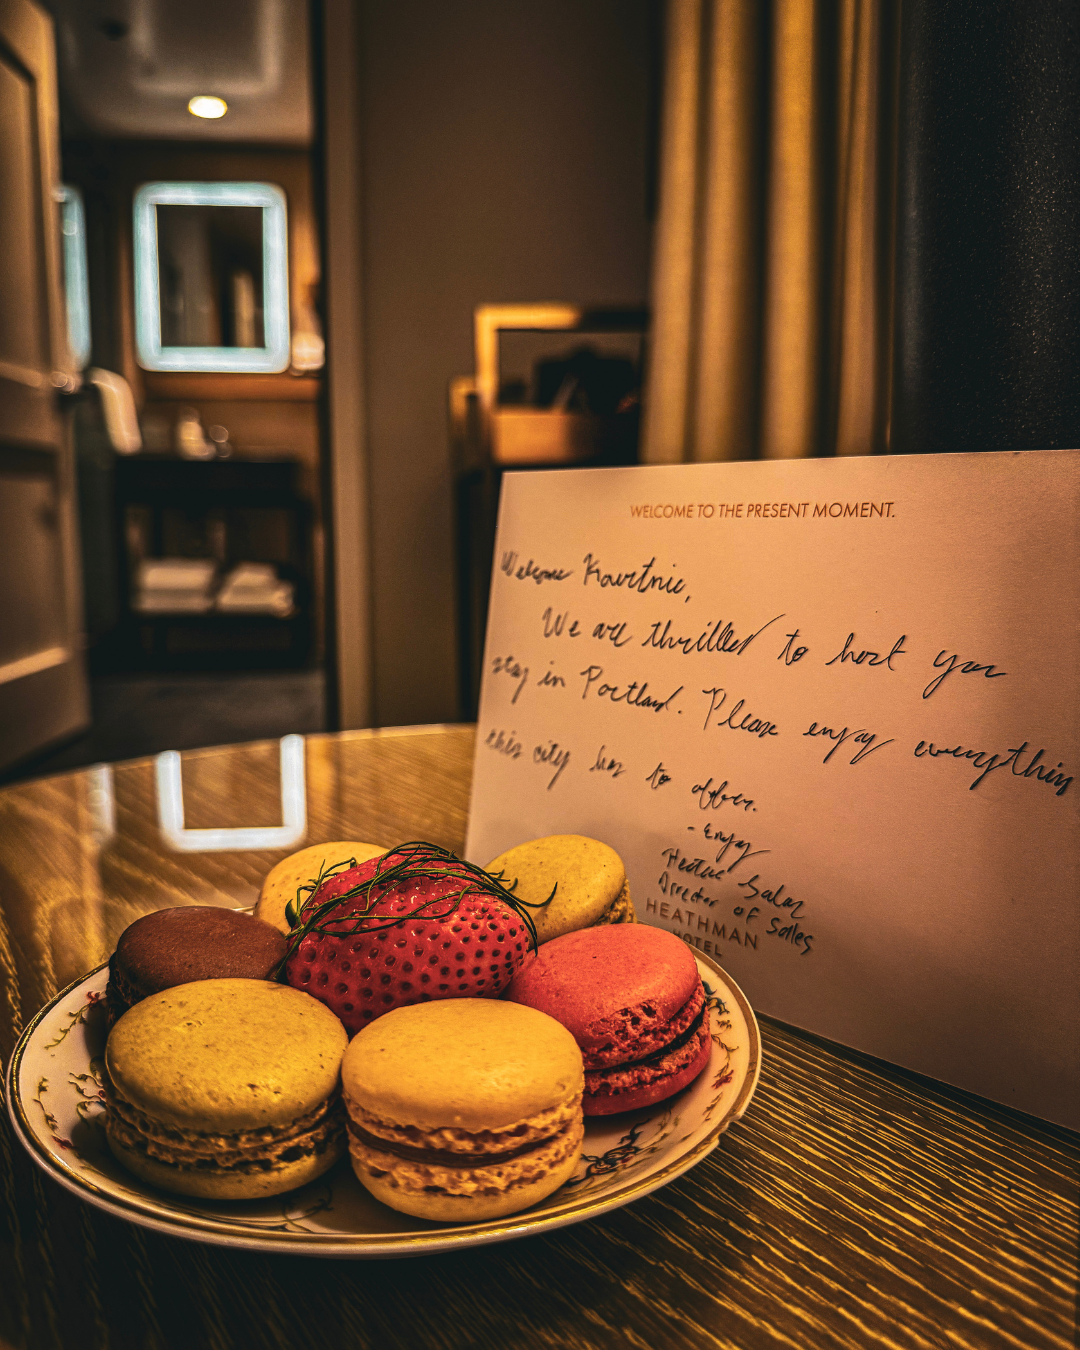 WELCOME TO THE PRESENT MOMENT.
Welcome Kourtnie,
We are thrilled to host you
stay in Portland. Please enjoy everythin
this city has to offer.
- Enjoy
Salas
Director of Sales
HEATHMAN
HOTEL